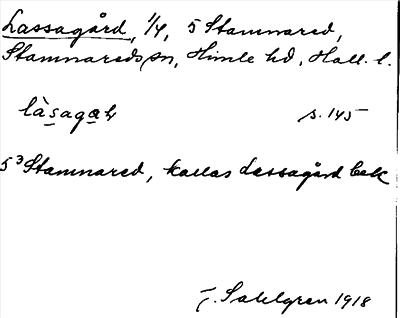 Lassagård, 1/4, 5 Stamnared,
Stamnareds sn, Himle hd, Hall. l.
làsagaꝉ s. 145
5³ Stamnared, kallas Lassagård bek
J. Sahlgren 1918